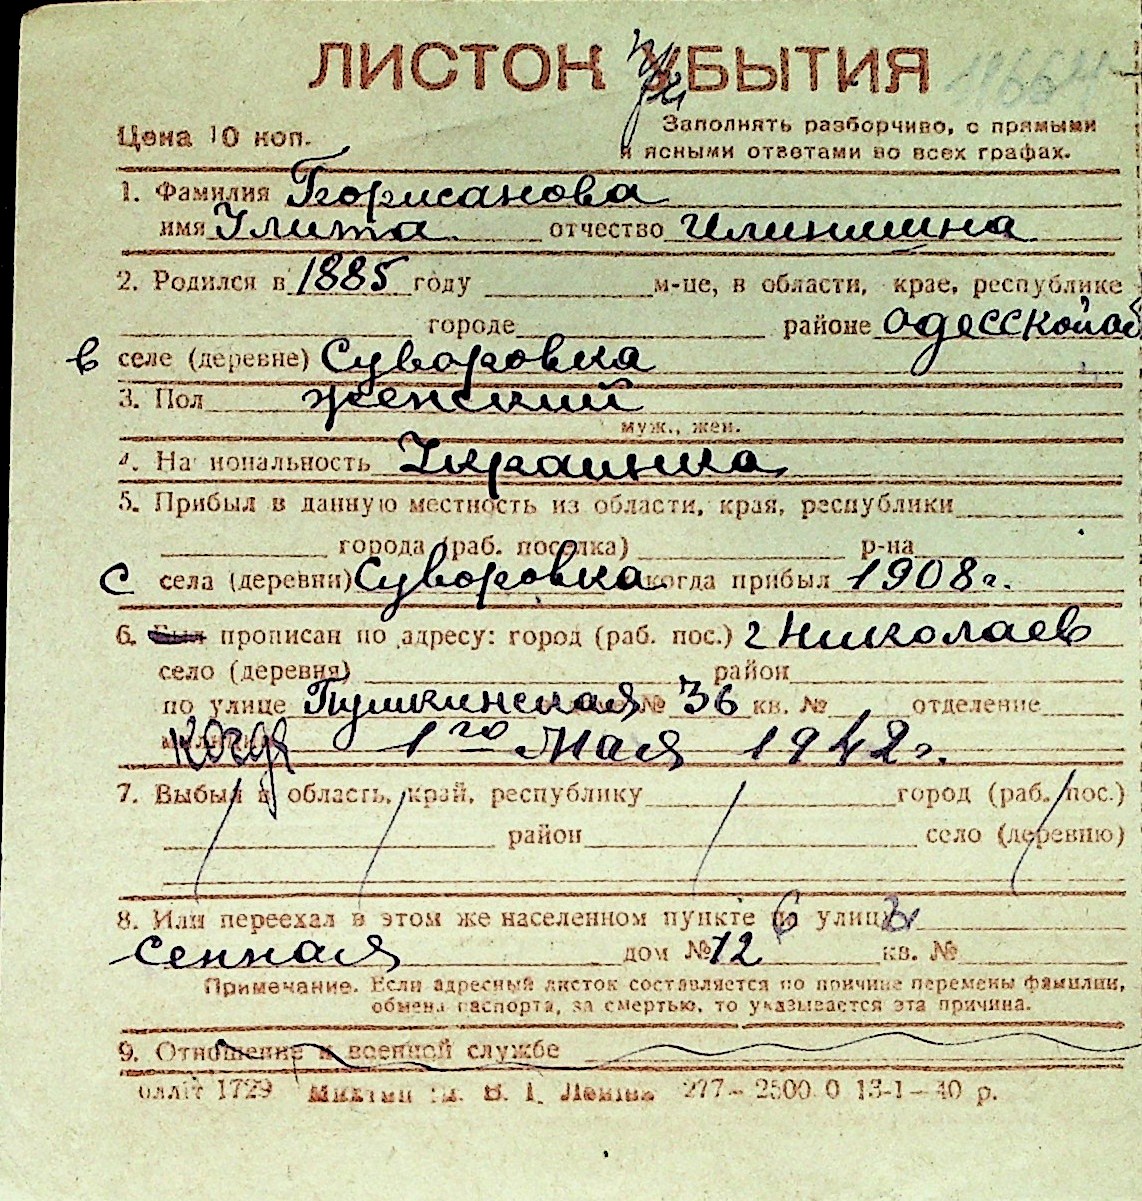 ЛИСТОК УБЫТИЯ
при
11664
Цена 10 коп.
Заполнять разборчиво, с прямыми
и ясными ответами во всех графах.
1. Фамилия Борисанова
имя Улита отчество Илинишна
2. Родился в 1885 году м-це, в области, крае, республике
городе районе Одесской об
в селе (деревне) Суворовка
3. Пол женский
муж., жен.
4. Национальность Украинка
5. Прибыл в данную местность из области, края, республики
города (раб. поселка) р-на
с села (деревни) Суворовка когда прибыл 1908 г.
6. Был прописан по адресу: город (раб. пос.) г Николаев
село (деревня) район
по улице Пушкинская № 36 кв. № отделение
когда 1го Мая 1942 г.
7. Выбыл в область, край, республику город (раб. пос.)
район село (деревню)
8. Или переехал в этом же населенном пункте по улице
Сенная дом № 12 кв. №
Примечание. Если адресный листок составляется по причине перемены фамилии,
обмена паспорта, за смертью, то указывается эта причина.
9. Отношение к военной службе
Облліт 1729 Миктип ім. В. І. Леніна 277—2500.0 13-1—40 р.